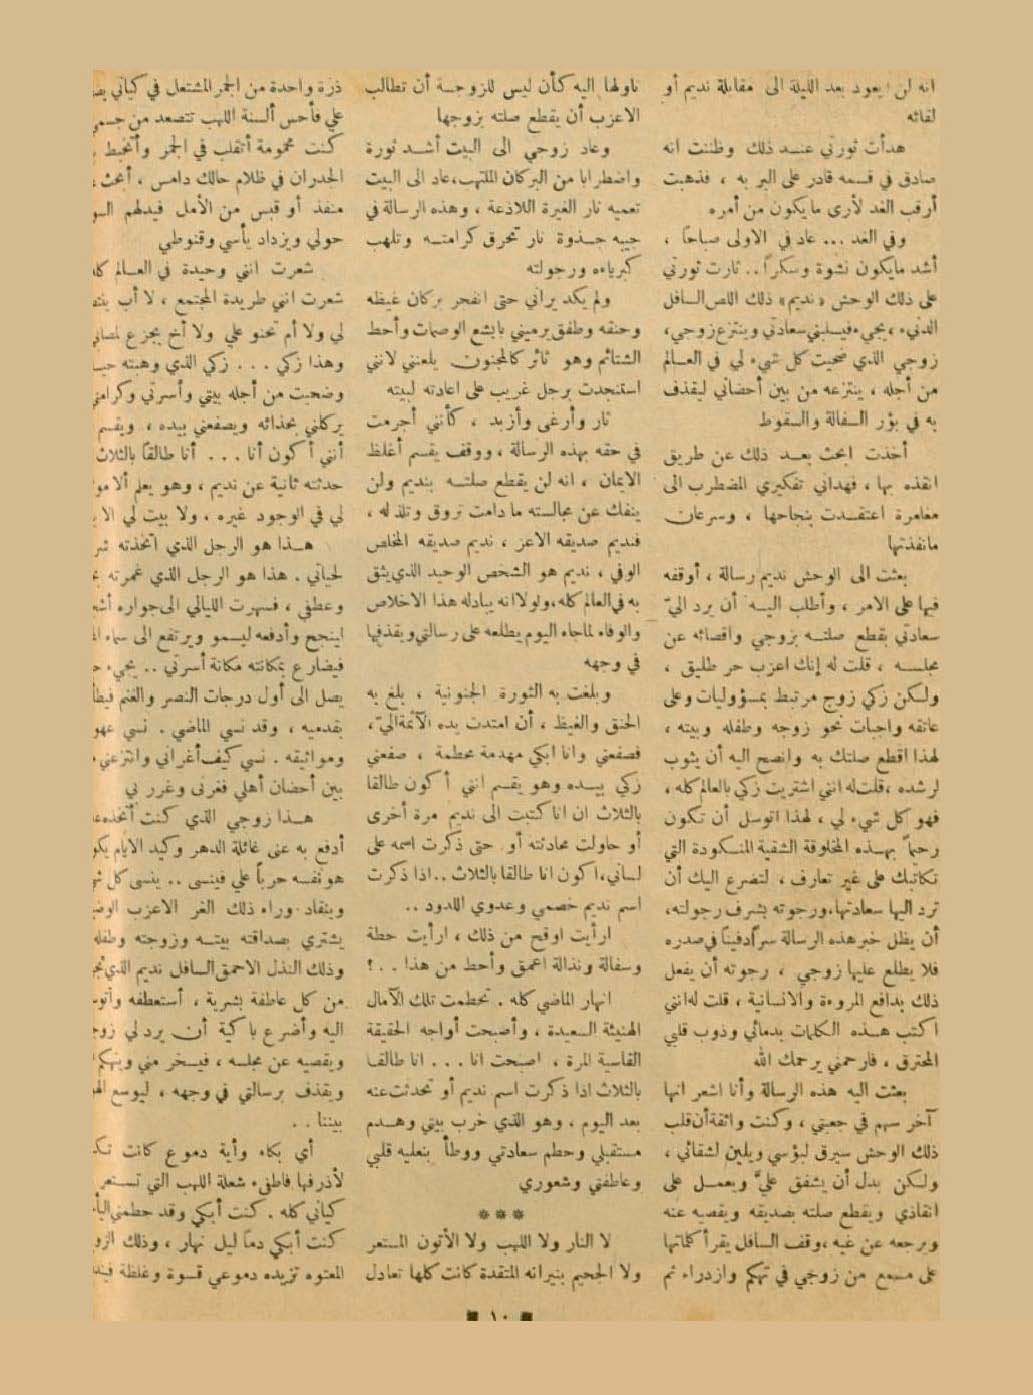 انه لن يعود بعد الليلة الى مقابلة نديم أو
لقائه
هدأت ثورتي عنـد ذلك وظننت انه
صادق في قسمه قادر على البر به ، فذهبت
أرقب الغد لأرى ما يكون من أمره
وفي الغد ... عاد في الاولى صباحاً ،
أشد ما يكون نشوة وسكراً .. ثارت ثورتي
على ذلك الوحش «نديم» ذلك اللص السافل
الدنيء ، يجيء فيسلبني سعادتي وينتزع زوجي ،
زوجي الذي ضحيت كل شيء لي في العـالم
من أجله ، ينتزعه من بين أحضاني ليقذف
به في بؤر السفالة والسقوط
أخذت ابحث بعـد ذلك عن طريق
انقذه بها ، فهداني تفكيري المضطرب الى
مغامرة اعتقـدت بنجاحها ، وسرعان
ما نفذتها
بعثت الى الوحش نديم رسالة ، أوقفه
فيها على الامر ، وأطلب اليـه أن يرد اليّ
سعادتي بقطع صلتـه بزوجي واقصائه عن
مجلسـه ، قلت له إنك اعزب حر طليق ،
ولكن زكي زوج مرتبط بمسؤوليات وعلى
عاتقه واجبات نحو زوجه وطفله وبيته ،
لهذا اقطع صلتك به وانصح اليه أن يثوب
لرشده ، قلت له انني اشتريت زكي بالعالم كله ،
فهو كل شيء لي ، لهذا اتوسل أن تكون
رحيماً بهـذه المخلوقة الشقية المنكودة التي
تكاتبك على غير تعارف ، لتضرع اليك أن
ترد اليها سعادتها، ورجوته بشرف رجولته،
أن يظل خبر هذه الرسالة سراً دفيناً في صدره
فلا يطلع عليها زوجي ، رجوته أن يفعل
ذلك بدافع المروءة والانسانية ، قلت له انني
اكتب هـذه الكلمات بدمائي وذوب قلبي
المحترق ، فارحمني يرحمك الله
بعثت اليه هذه الرسالة وأنا اشعر انها
آخر سهم في جعبتي ، وكنت واثقة أن قلب
ذلك الوحش سيرق لبؤسي ويلين لشقائي ،
ولكن بدل أن يشفق عليّ ويعمـل على
انقاذي ويقطع صلته بصديقه ويقصيه عنه
ويرجعه عن غيه ، وقف السافل يقرأ كلماتها
على مسمع من زوجي في تهكم وازدراء ثم
ناولها اليه كأن ليس للزوجـة أن تطالب
الاعزب أن يقطع صلته بزوجها
وعاد زوجي الى البيت أشـد ثورة
واضطرابا من البركان الملتهب ، عاد الى البيت
تعميه نار الغيرة اللاذعة ، وهذه الرسالة في
جيبه جـذوة نار تحرق كرامتـه وتلهب
كبرياءه ورجولته
ولم يكد يراني حتى انفجر بركان غيظه
وحنقه وطفق يرميني بابشع الوصمات وأحط
الشتائم وهو ثائر كالمجنون يلعنني لانني
استنجدت برجل غريب على اعادته لبيته
ثار وأرغى وأزبد ، كأنني أجرمت
في حقه بهذه الرسالة ، ووقف يقسم أغلظ
الايمان ، انه لن يقطع صلتـه بنديم ولن
ينفك عن مجالسته ما دامت تروق وتلذ له ،
فنديم صديقه الاعز ، نديم صديقه المخلص
الوفي ، نديم هو الشخص الوحيد الذي يثق
به في العالم كله ، ولولا انه يبادله هذا الاخلاص
والوفاء لما جاء اليوم يطلعه على رسالتي ويقذفها
في وجهه
وبلغت به الثورة الجنونية ، بلغ به
الحنق والغيظ ، أن امتدت يده الآثمة اليّ ،
فصفعني وانا ابكي مهدمة محطمة ، صفعني
زكي بيـده وهو يقسم انني أكون طالقا
بالثلاث ان انا كتبت الى نديم مرة أخرى
أو حاولت محادثته أو حتى ذكرت اسمه على
لساني، اكون انا طالقا بالثلاث .. اذا ذكرت
اسم نديم خصمي وعدوي اللدود ..
ارأيت اوقح من ذلك ، ارأيت حطة
وسفالة ونذالة اعمق وأحط من هذا ..؟
انهار الماضي كله . تحطمت تلك الآمال
الهنيئة السعيدة ، وأصبحت أواجه الحقيقة
القاسية المرة ، اصبحت انا ... انا طالقـا
بالثلاث اذا ذكرت اسم نديم أو تحدثت عنه
بعد اليوم ، وهو الذي خرب بيتي وهـدم
مستقبلي وحطم سعادتي ووطأ بنعليه قلبي
وعاطفتي وشعوري
***
لا النار ولا اللهب ولا الأتون المستعر
ولا الجحيم بنيرانه المتقدة كانت كلها تعادل
ذرة واحدة من الجمر المشتعل في كياني
علي فأحس ألسنة اللهب تتصعد من جسمي
كنت محمومة أتقلب في الجمر وأتخبط
الجدران في ظلام حالك دامس ، أبحث
منفذ أو قبس من الأمل فيدلهم
حولي ويزداد يأسي وقنوطي
شعرت انني وحيدة في العـالم
شعرت انني طريدة المجتمع ، لا أب
لي ولا أم تحنو علي ولا أخ يجزع
وهذا زكي ... زكي الذي وهبته
وضحيت من أجله بيتي وأسرتي
يركلني بحذائه ويصفعني بيده ، ويقسم
أنني أكون أنا ... أنا طالقاً بالثلاث
حدثته ثانية عن نديم ، وهو يعلم
لي في الوجود غيره ، ولا بيت لي
هـذا هو الرجل الذي اتخذته
لحياتي . هذا هو الرجل الذي غمرته
وعطفي ، فسهرت الليالي الى جواره
لينجح وأدفعه ليسمو ويرتفع الى سماء
فيضارع بمكانته مكانة أسرتي .. يجيء
يصل الى أول درجات النصر والغنم
بقدميه ، وقد نسي الماضي . نسي
ومواثيقه . نسي كيف أغراني وانتزعني
بين أحضان أهلي فغرني وغرر بي
هـذا زوجي الذي كنت
أدفع به عني غائلة الدهر وكيد الأيام
هو نفسـه حرباً علي فينسى .. ينسى كل
وينقاد وراء ذلك الغر الاعزب
يشتري بصداقته بيتـه وزوجته
وذلك النذل الاحمق السافل نديم
من كل عاطفة بشرية ، أستعطفه
اليه وأضرع باكية أن يرد لي
ويقصيه عن مجلسه ، فيسخر مني
ويقذف برسالتي في وجهه ، ليوسع
بيننا ..
أي بكاء وأية دموع كانت
لأذرفها فاطفىء شعلة اللهب التي تستعر
كياني كله . كنت أبكي وقد حطمني
كنت أبكي دماً ليل نهار ، وذلك
المعتوه تزيده دموعي قسوة وغلظة
■ ١٠ ■